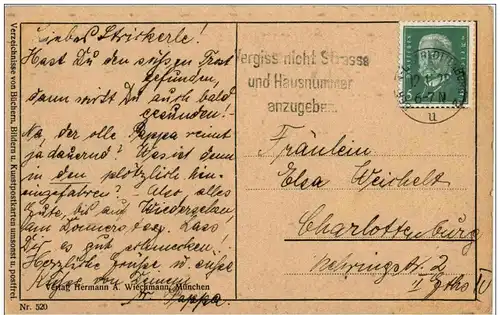 Liebes Strickerle!
Hast Du den süßen Trost
gefunden,
dann wirst Du auch bald
gesunden!
Na, der olle Pappa weint
ja dauernd! Was ist denn
in den plötzlich hin-
eingefahren? Also alles
Gute, bis auf Wiedersehen
am Donnerstag. Lass
Dir es gut schmecken!
Herzliche Grüße u. süße
Küsse von
Pappa.
Verlag Hermann A. Wiechmann, München
Nr. 520
Verzeichnisse von Büchern, Bildern u. Kunstpostkarten umsonst u. postfrei.
Vergiss nicht Strasse
und Hausnummer
anzugeben.
u
Fräulein
Elsa Weichelt
Charlottenburg
Nehringstr. 2